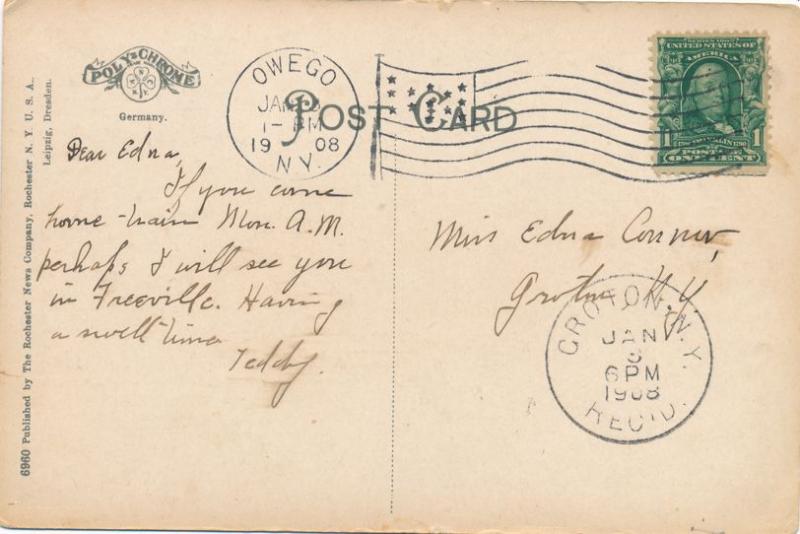 6960 Published by The Rochester News Company, Rochester N. Y. U. S. A.
Leipzig, Dresden.
POLY-CHROME
Germany.
OWEGO
JAN
1- PM
1908
N.Y.
POST CARD
SERIES 1902
UNITED STATES OF
AMERICA
1 1
POSTAGE
ONE CENT
Dear Edna,
If you come
home-train Mon. A.M.
perhaps I will see you
in Freeville. Having
a swell time
Teddy.
Miss Edna Conner,
Groton N.Y.
GROTON, N.Y.
JAN
3
6PM
1908
REC'D.